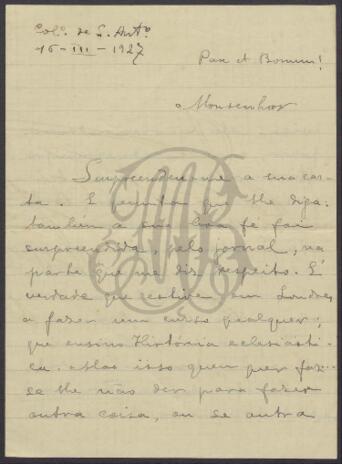 Col.º de S. Antº
16-III-1927
Pax et Bonum!
Monsenhor
Surpreendeu-me a sua car-
ta. E permita que lhe diga:
também a sua boa fé foi
surpreendida, pelo jornal, na
parte que me diz respeito. É
verdade que estive em Londres
a fazer um curso qualquer;
que ensino História eclesiásti-
ca. Mas isso quem quer faz...
se lhe não der para fazer
outra coisa, ou se outra